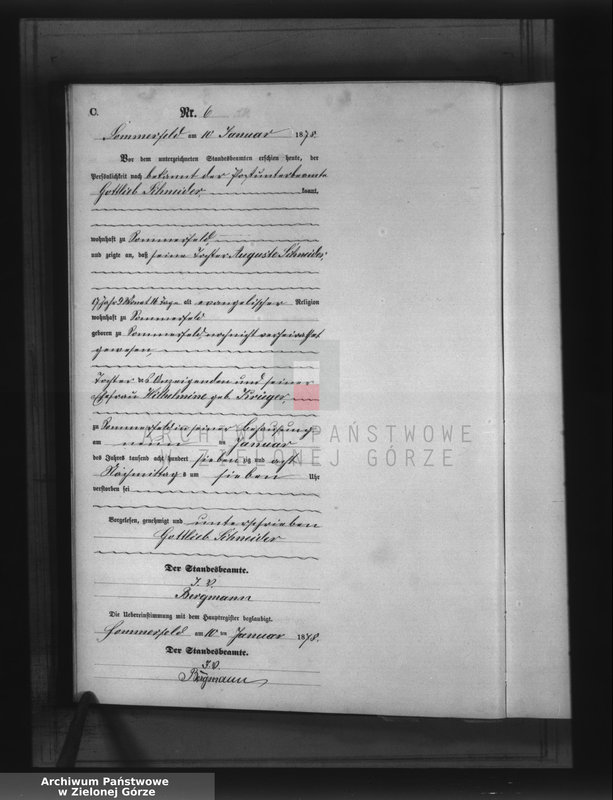 C.
Nr. 6
Sommerfeld am 10 Januar 1878.
Vor dem unterzeichneten Standesbeamten erschien heute, der
Persönlichkeit nach bekannt der Postunterbeamte
Gottlieb Schneider, kannt,
wohnhaft zu Sommerfeld,
und zeigte an, daß seine Tochter Auguste Schneider,
Jahr 9 Monat Tage alt evangelischer Religion
wohnhaft zu Sommerfeld
geboren zu Sommerfeld, noch nicht verheirathet
gewesen,
Tochter des Anzeigenden und seiner
Ehefrau Wilhelmine geb. Krüger,
zu Sommerfeld in seiner Behausung
am neunten Januar
des Jahres tausend acht hundert siebenzig und acht
Nachmittags um sieben Uhr
verstorben sei
Vorgelesen, genehmigt und unterschrieben
Gottlieb Schneider
Der Standesbeamte.
I. V.
Bergmann
Die Uebereinstimmung mit dem Hauptregister beglaubigt.
Sommerfeld am 10 ten Januar 1878.
Der Standesbeamte.
I. V.
Bergmann
ARCHIWUM PAŃSTWOWE
ZIELONEJ GÓRZE
Archiwum Państwowe
w Zielonej Górze